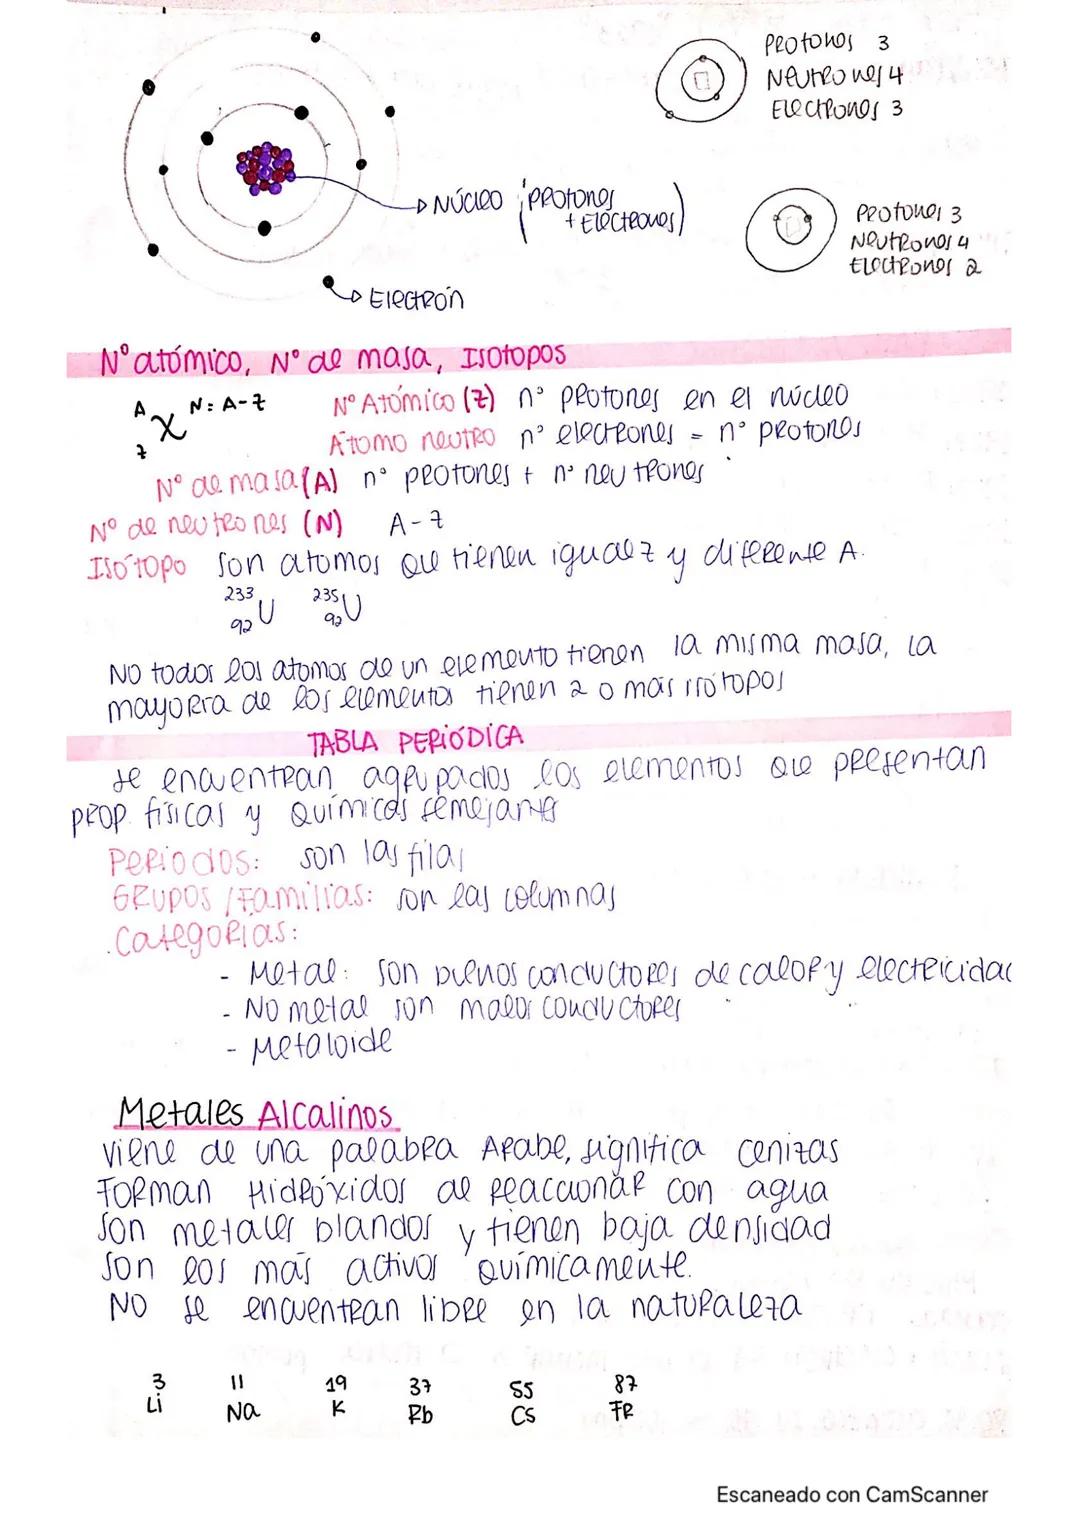 Protones 3
Neutrones 4
Electrones 3
Núcleo (Protones
+ Electrones)
Protones 3
Neutrones 4
Electrones 2
Electrón
N° atómico, N° de masa, Isotopos
A
X N: A-Z
Z
N° Atómico (Z) n° protones en el núcleo
Átomo neutro n° electrones = n° protones
N° de masa (A) n° protones + n° neutrones
N° de neutrones (N) A-Z
Isótopo son atomos que tienen igual Z y diferente A.
233 235
92 U 92 U
No todos los atomos de un elemento tienen la misma masa, la
mayoría de los elementos tienen 2 o más isótopos
TABLA PERIÓDICA
se encuentran agrupados los elementos que presentan
prop. físicas y químicas semejantes
Periodos: son las filas
Grupos / Familias: son las columnas
Categorias:
- Metal: son buenos conductores de calor y electricidad
- No metal son malos conductores
- Metaloide
Metales Alcalinos
viene de una palabra Arabe, significa cenizas
Forman Hidróxidos al reaccionar con agua
Son metales blandos y tienen baja densidad
Son los más activos químicamente.
NO se encuentran libre en la naturaleza
3 11 19 37 55 87
Li Na K Rb Cs Fr
Escaneado con CamScanner